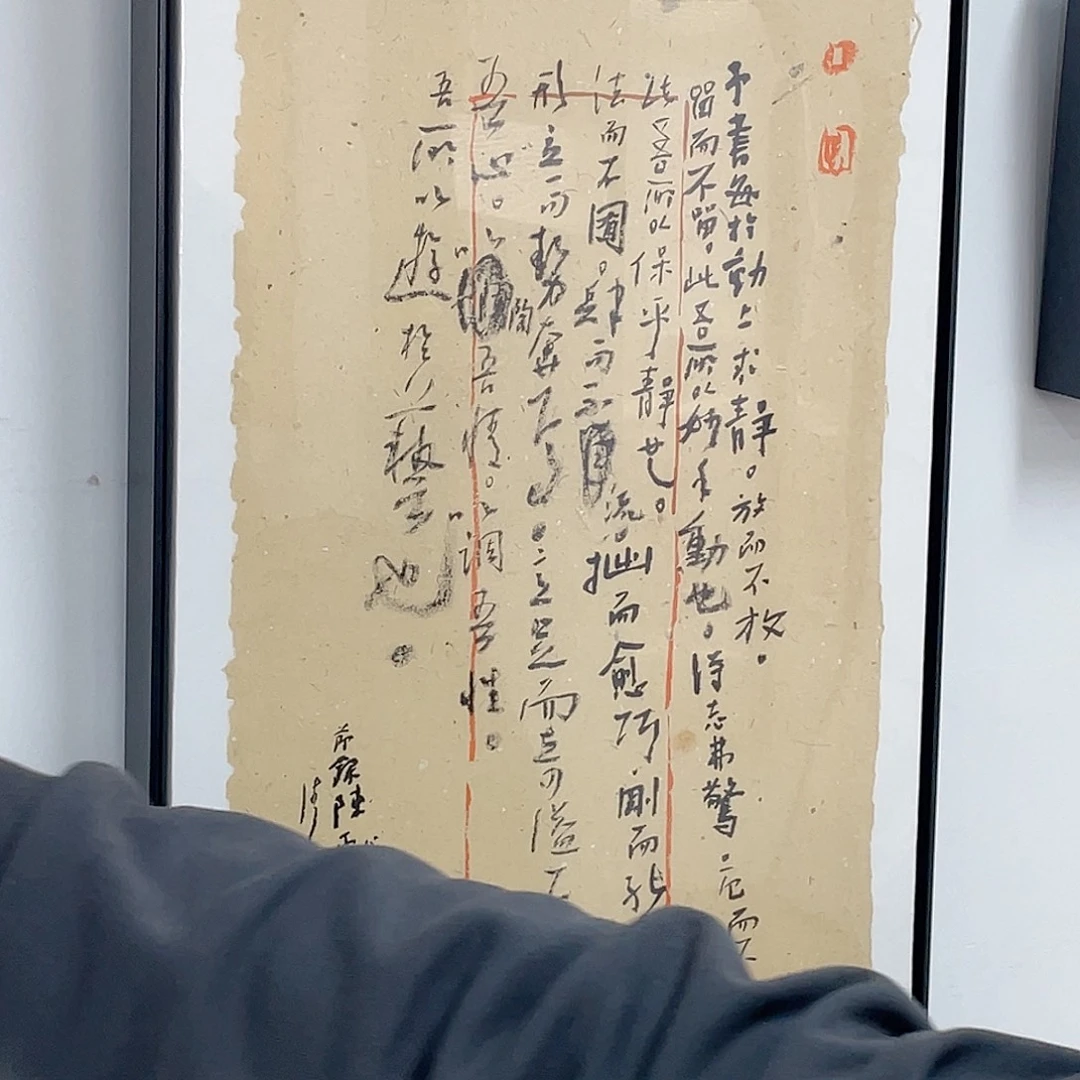 予書每於動上求靜。放而不放。
留而不留。此吾所以妙乎動也。得志弗驚。危而不
此吾所以保乎靜也。
法而不囿。肆而不流。拙而愈巧剛而
形立而勢奔
焉。意足而奇溢不
吾心。以陶吾情。以調吾性。
吾所以遊於藝也。
節錄陸